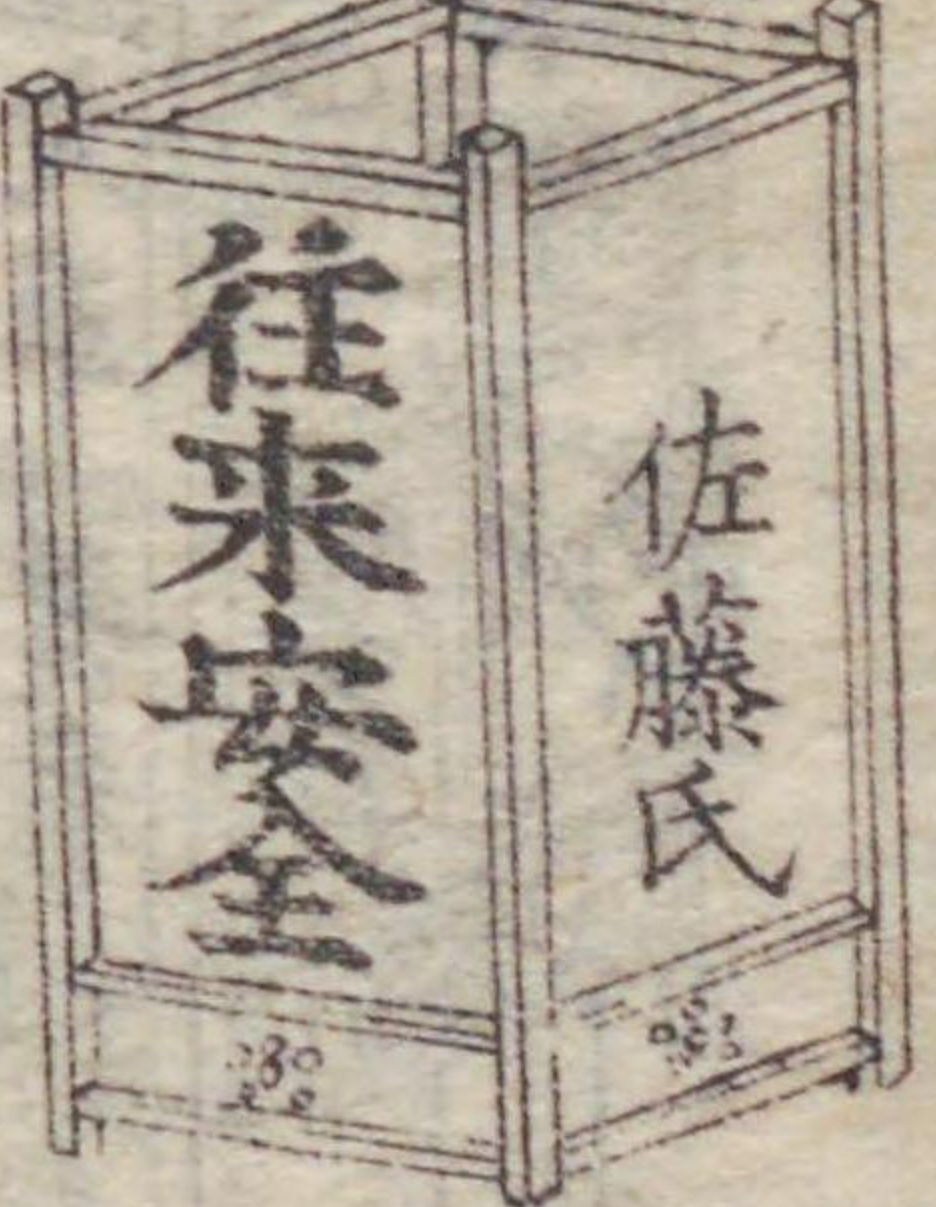 佐藤氏
往来安全